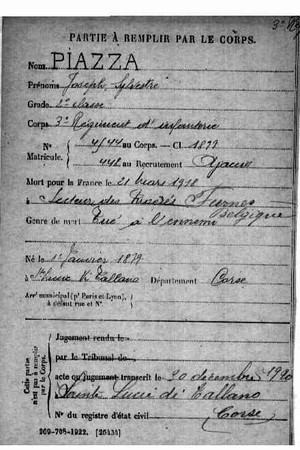 3e R
PARTIE À REMPLIR PAR LE CORPS.
Nom PIAZZA
Prénoms Joseph, Sylvestre
Grade 2e classe
Corps 3e Régiment d'infanterie
N° 4/44 au Corps. — Cl. 1899
Matricule. 442 au Recrutement Ajaccio
Mort pour la France le 21 mars 1918
à Secteur des Furnes
Belgique
Genre de mort Tué à l'ennemi
Né le 1er Janvier 1879
à Ste Lucie di Tallano Département Corse
Arrt municipal (pr Paris et Lyon),
à défaut rue et N°.
Cette partie n'est pas à remplir par le Corps.
Jugement rendu le
par le Tribunal de
acte ou jugement transcrit le 20 décembre 1920
à Sainte Lucie di Tallano
Corse
N° du registre d'état civil
209-708-1922. [26434]